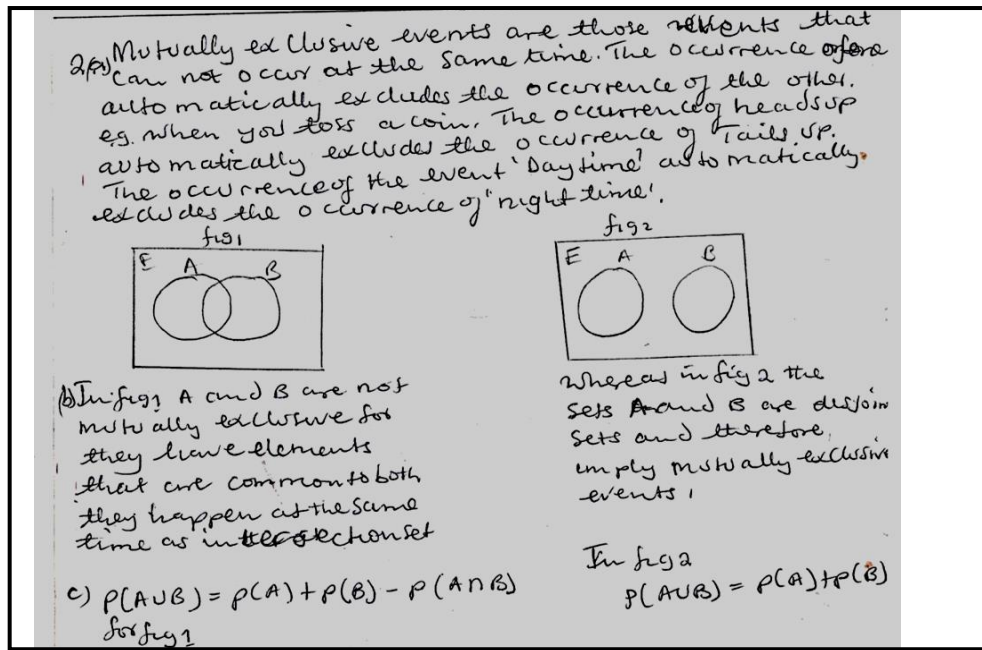 2(a) Mutually exclusive events are those events that
can not occur at the same time. The occurrence of one
automatically excludes the occurrence of the other.
e.g. when you toss a coin, The occurrence of heads up
automatically excludes the occurrence of Tails up.
The occurrence of the event 'Day time' automatically
excludes the occurrence of 'night time'.
fig1
E A B
fig2
E A B
(b) In fig1 A and B are not
mutually exclusive for
they have elements
that are common to both
they happen at the same
time as intersection set
whereas in fig 2 the
sets A and B are disjoin
sets and therefore
imply mutually exclusive
events,
c) P(A∪B) = P(A) + P(B) - P(A∩B)
for fig 1
In fig 2
P(A∪B) = P(A)+P(B)